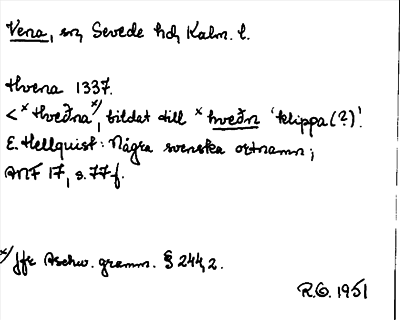 Vena, sn, Sevede hd, Kalm. l.
Hvena 1337.
< *Hveðna x/, bildat till *hveðn 'klippa(?)'.
E. Hellquist: Några svenska ortnamn;
ANF 17, s. 77 f.
x/ Jfr Aschw. gramm. § 244,2.
R.O. 1951